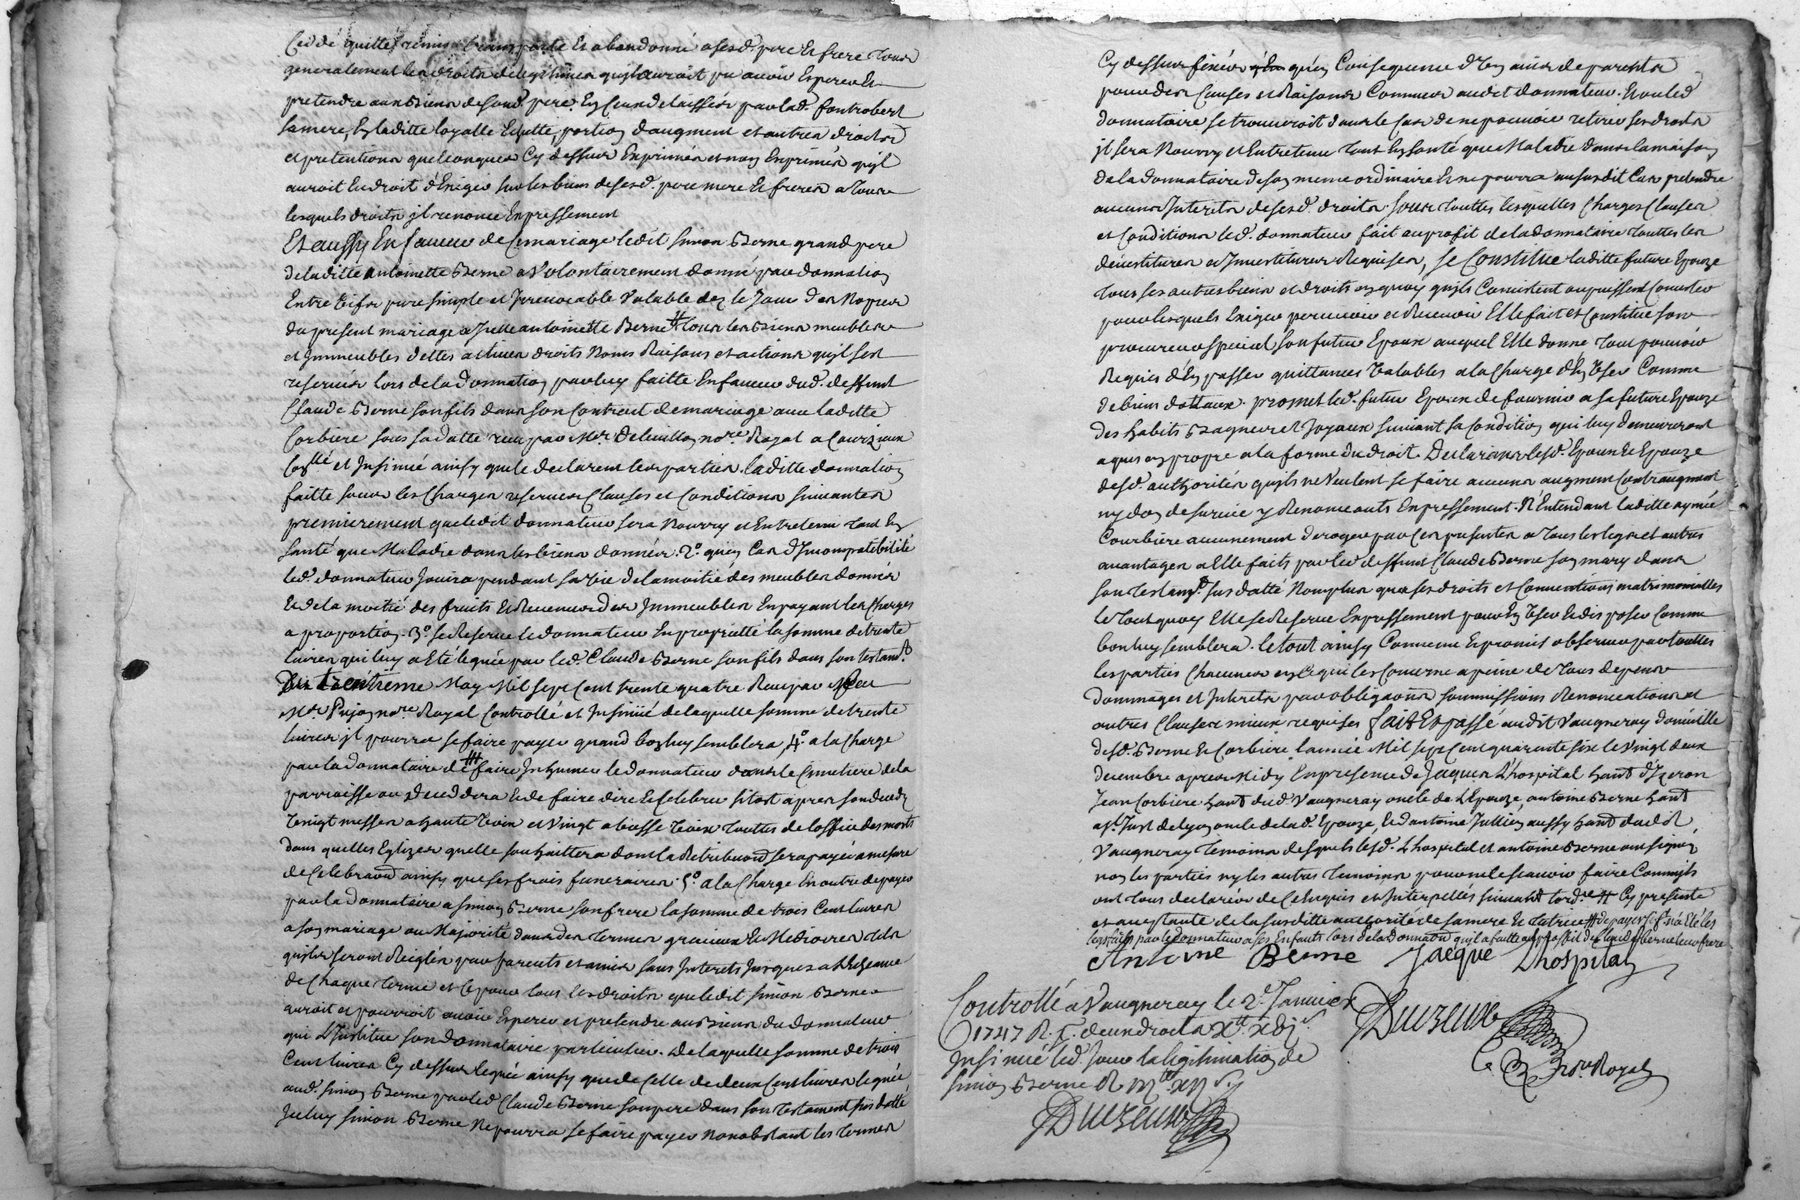 Cedé quitté remis transporté et abandonné a sesd. pere et frere tous
generalement les droits de legitime quil auroit pu avoir esperer et
pretendre aux biens de sond. pere et en ceux delaissés par lad. fontrobert
sa mere, en laditte loyalle et cette portion daugment et autres droits
et pretentions quelconques cy dessus exprimés et non exprimés quil
auroit eu droit d'exiger sur les biens de sesd. pere mere et freres a tous
lesquels droits jl renonce expressement
Et aussy en faveur de ce mariage ledit simon Berne grand pere
de laditte antoinette Berne a volontairement donné par donnation
Entre vifs pure simple et jrrevocable valable dez le jour des nopces
du present mariage a jcelle antoinette Berne # tous les biens meubles
et jmmeubles dettes actives droits noms raisons et actions quil sest
reservés lors de la donnation par luy faitte en faveur dud. deffunt
Claude Berne son fils dans son contract de mariage avec laditte
Corbiere sous sa datte reçu par Mtr. nore. Royal a Courzieux
Conllé et jnsinué ainsy que le declarent les parties. laditte donnation
faitte sous les charges reserves clauses et conditions suivantes
premierement que ledit donnateur sera nourry et entretenu tant en
santé que maladie dans les biens donnés. 2o. qu'en cas d'jncompatibilité
led. donnateur jouira pendant sa vie de la moitié des meubles donnés
et de la moitié des fruits et revenus des jmmeubles en payant les charges
a proportion. 3o. se reserve le donnateur en proprieté la somme de trente
livres qui luy a eté leguée par led. Claude Berne son fils dans son testamt.
May mil sept cent trente quatre Reçu par
Mtr. Pujo nore. Royal controllé et jnsinué de laquelle somme de trente
livres jl pourra se faire payer quand bon luy semblera, 4o. a la charge
par la donnataire de ### faire jnhumer le donnateur dans le cimetiere de la
parroisse ou jl deceddera et de faire dire et celebrer sitost apres son deceds
vingt messes a haute voix et vingt a basse voix touttes de l'office des morts
dans quelles Eglizes quelle souhaittera dont la retribuon. sera payée a mesure
de celebraon. ainsy que ses frais funeraires. 5o. a la charge en outre de payer
par la donnataire a simon Berne son frere la somme de trois cent livres
a son mariage ou majorité dans des termes gracieux et mediocres tels
quils seront reglés par parents et amis sans jnterets jusques a l'echeance
de chaque terme et ce pour tous les droits que ledit simon Berne
auroit et pourroit avoir esperer et pretendre aux biens du donnateur
qui l'jnstitue son donnataire particulier. de laquelle somme de trois
cent livres cy dessus leguée ainsy que de celle de deux cent livres leguée
aud. simon Berne par led. Claude Berne son pere dans son testament sus datté
jceluy simon Berne ne pourra se faire payer nonobstant les termes
Cy dessus fixés qu'en consequence d'un avis de parents
pour des causes et raisons connues audit donnateur. Et ou led.
donnataire se trouveroit dans le cas de ne pouvoir retirer ses droits
jl sera nourry et entretenu tant en santé que maladie dans la maison
de la donnataire de son meme ordinaire et ne pourra au susdit cas pretendre
aucuns jnterets de sesd. droits. sous touttes lesquelles charges clauses
et conditions led. donnateur fait au profit de la donnataire touttes les
devestitures et jnvestitures requises, se constitue laditte future Epouze
tous ses autres biens et droits en quoy quils consistent ou puissent consister
pour lesquels exiger percevoir et recevoir Elle fait et constitue son
procureur special son futur Epoux auquel Elle donne tout pouvoir
requis d'en passer quittances valables a la charge d'en user comme
de biens dottaux. promet led. futur Epoux de fournir a sa future Epouze
des habits Bagues et joyaux suivant sa condition qui luy demeureront
aquis en propre a la forme du droit. Declarants lesd. Epoux et Epouze
desd. authorités quils ne veulent se faire aucun augment contraugment
ny don de survie y renoncants expressement. N'entendant laditte aymée
Courbiere aucunement deroger par ces presentes a tous les legs et autres
avantages a elle faits par led. deffunt Claude Berne son mary dans
son testamt. sus datté non plus qua ses droits et conventions matrimonialles
le tout quoy elle se reserve expressement pour en user et disposer comme
bon luy semblera. le tout ainsy convenu et promis observer par touttes
les parties chacune en ce qui les concerne a peine de tous depens
dommages et jnterets par obligaons. soumissions renonciations et
autres clauses mieux requises fait et passé audit Vaugneray domicille
desd. Berne et Corbiere l'année mil sept cent quarante six le vingt deux
decembre apres midy en presence de jacques L'hospital hant. d'Yzeron
Jean Corbiere hant. dud. Vaugneray oncle de L'Epouze, antoine Berne hant.
a st. just de lyon oncle de lad. Epouze, et d'antoine jullien aussy hant. dudit
Vaugneray temoins desquels lesd. L'hospital et antoine Berne ont signé
non les parties ny les autres temoins pour ne le scavoir faire comme jls
ont tous declarés de ce enquis et jnterpellés suivant lord.ce # Cy presente
et acceptante de la susditte authorité de sa mere et tutrice # de payer
par le donnateur a ses Enfants lors de la donnaon. qu'il a faitte au profit de Claude Berne leur frere
Antoine Berne Jacque Lhospital
Controllé a Vaugneray le 2e. Janvier
1747 R.
Jnsinué led. jour la legitimation de
simon Berne R
Duizeux
nore. Royal
Duizeux